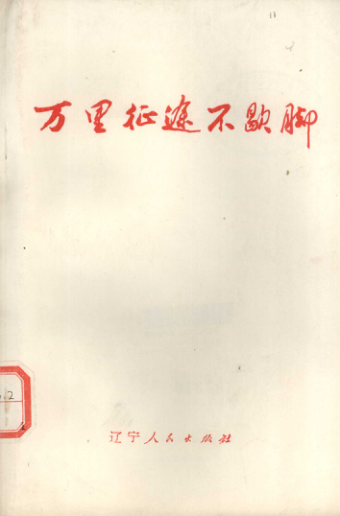 万里征途不歇脚
辽宁人民出版社